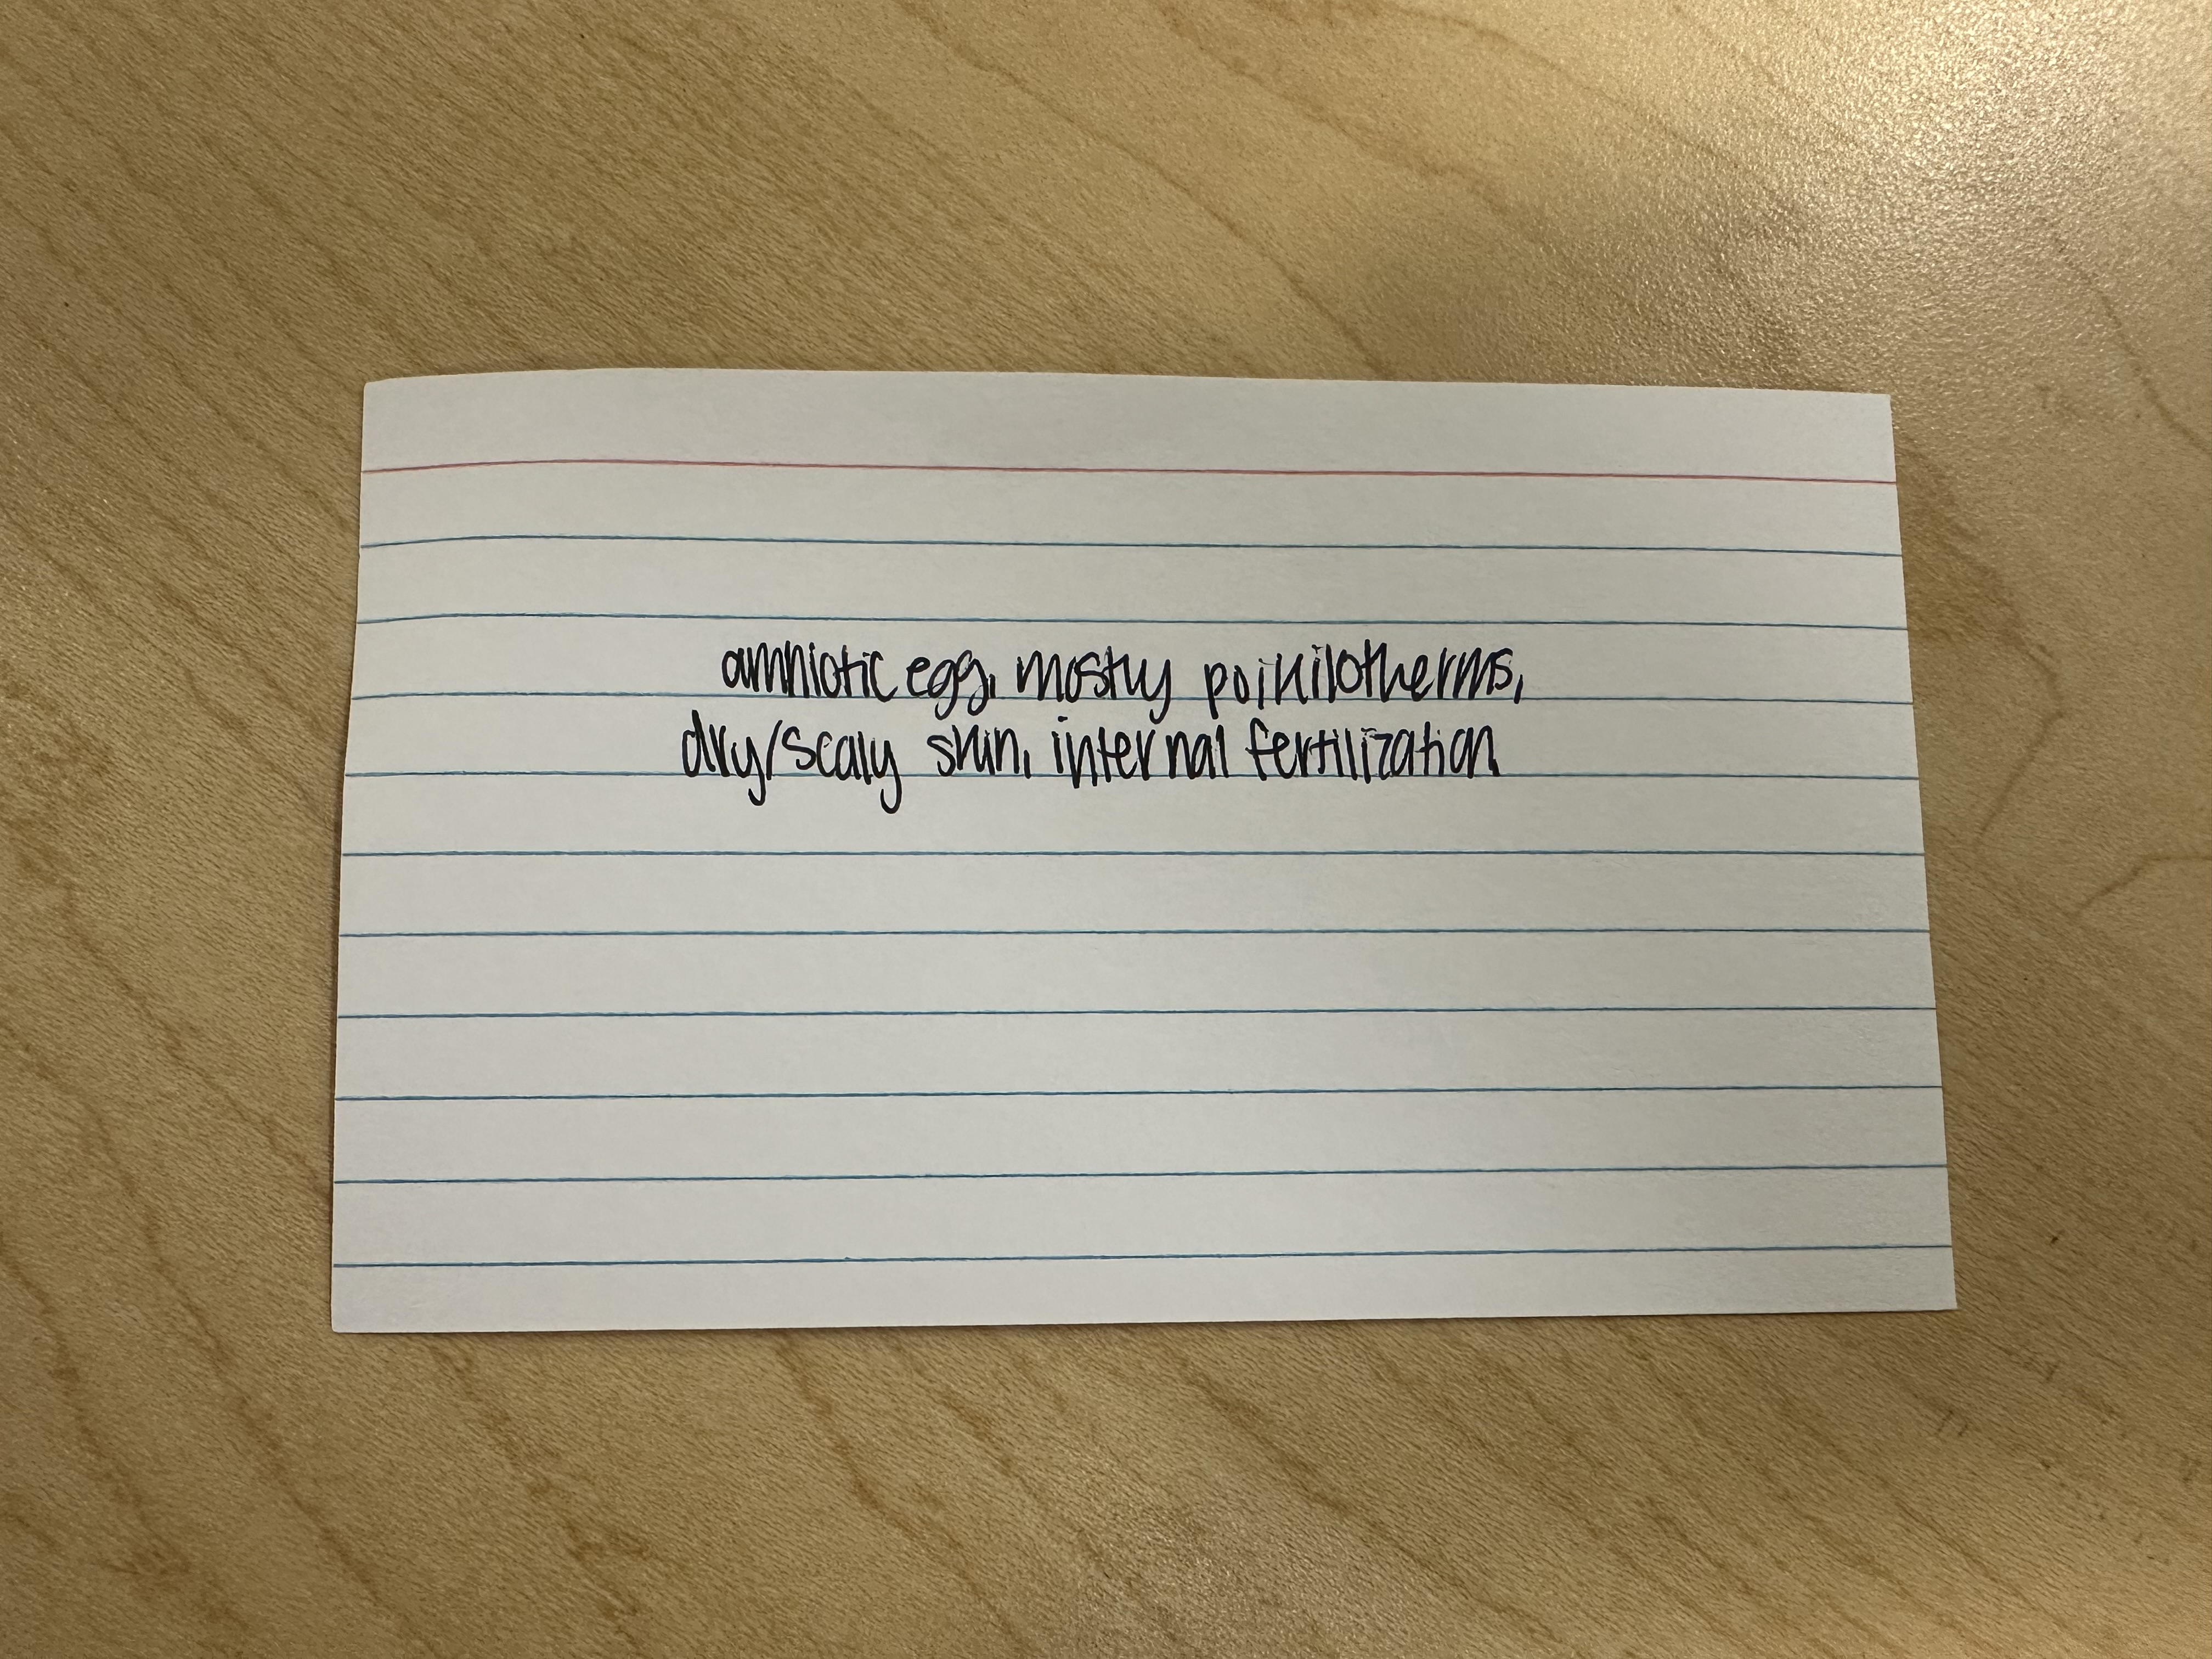 amniotic egg, mostly poikilotherms,
dry/scaly skin, internal fertilization